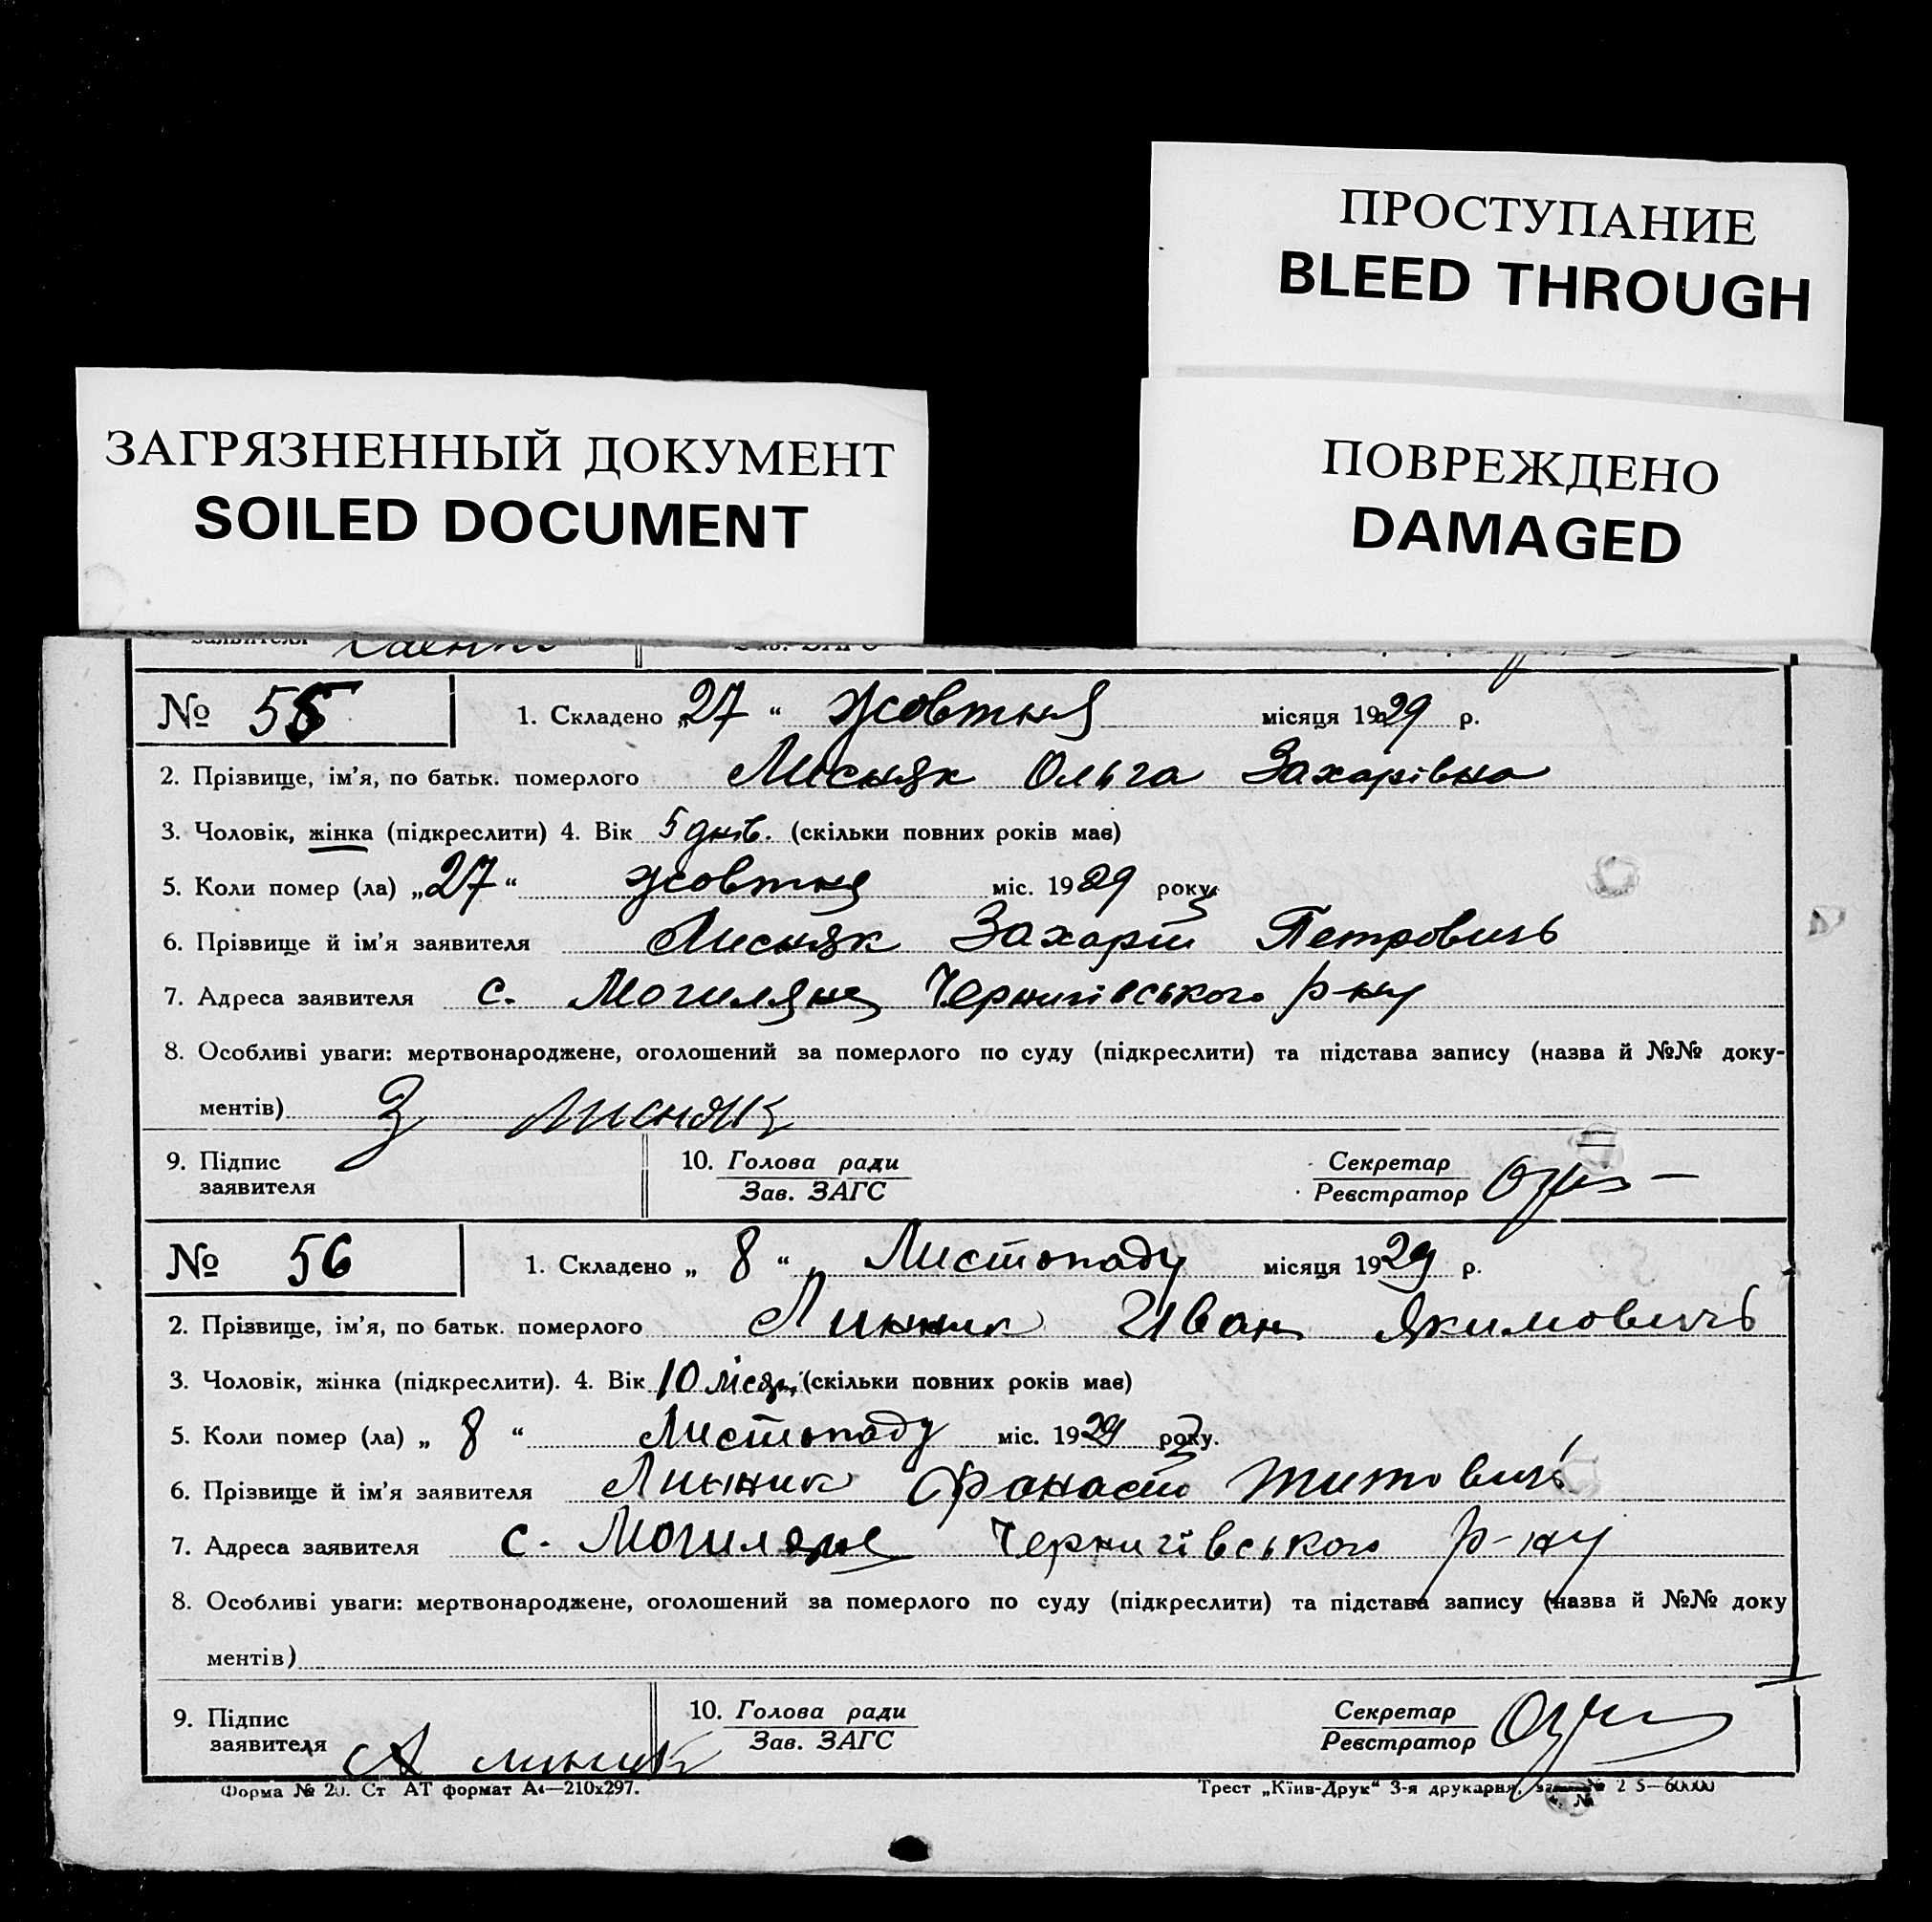 ПРОСТУПАНИЕ
BLEED THROUGH
ЗАГРЯЗНЕННЫЙ ДОКУМЕНТ
SOILED DOCUMENT
ПОВРЕЖДЕНО
DAMAGED
заявителя
№ 55 1. Складено „27“ жовтня місяця 1929 р.
2. Прізвище, ім’я, по батьк. померлого Лисняк Ольга Захарівна
3. Чоловік, жінка (підкреслити) 4. Вік 5 днів. (скільки повних років має)
5. Коли помер (ла) „27“ жовтня міс. 1929 року
6. Прізвище й ім’я заявителя Лисняк Захарій Петровичь
7. Адреса заявителя с. Могиляне Чернигівського р-ну
8. Особливі уваги: мертвонароджене, оголошений за померлого по суду (підкреслити) та підстава запису (назва й №№ доку-
ментів) З Лисняк
9. Підпис заявителя 10. Голова ради Зав. ЗАГС Секретар Реєстратор
№ 56 1. Складено „8“ Листопаду місяця 1929 р.
2. Прізвище, ім’я, по батьк. померлого Линник Иван Якимовичь
3. Чоловік, жінка (підкреслити). 4. Вік 10 місяц. (скільки повних років має)
5. Коли помер (ла) „8“ Листопаду міс. 1929 року.
6. Прізвище й ім’я заявителя Линник Фанасій Титовичь
7. Адреса заявителя с. Могиляне Чернигівського р-ну
8. Особливі уваги: мертвонароджене, оголошений за померлого по суду (підкреслити) та підстава запису (назва й №№ доку
ментів)
9. Підпис заявителя А линник 10. Голова ради Зав. ЗАГС Секретар Реєстратор
Форма № 20. Ст АТ формат А4—210x297. Трест „Київ-Друк“ 3-я друкарня,